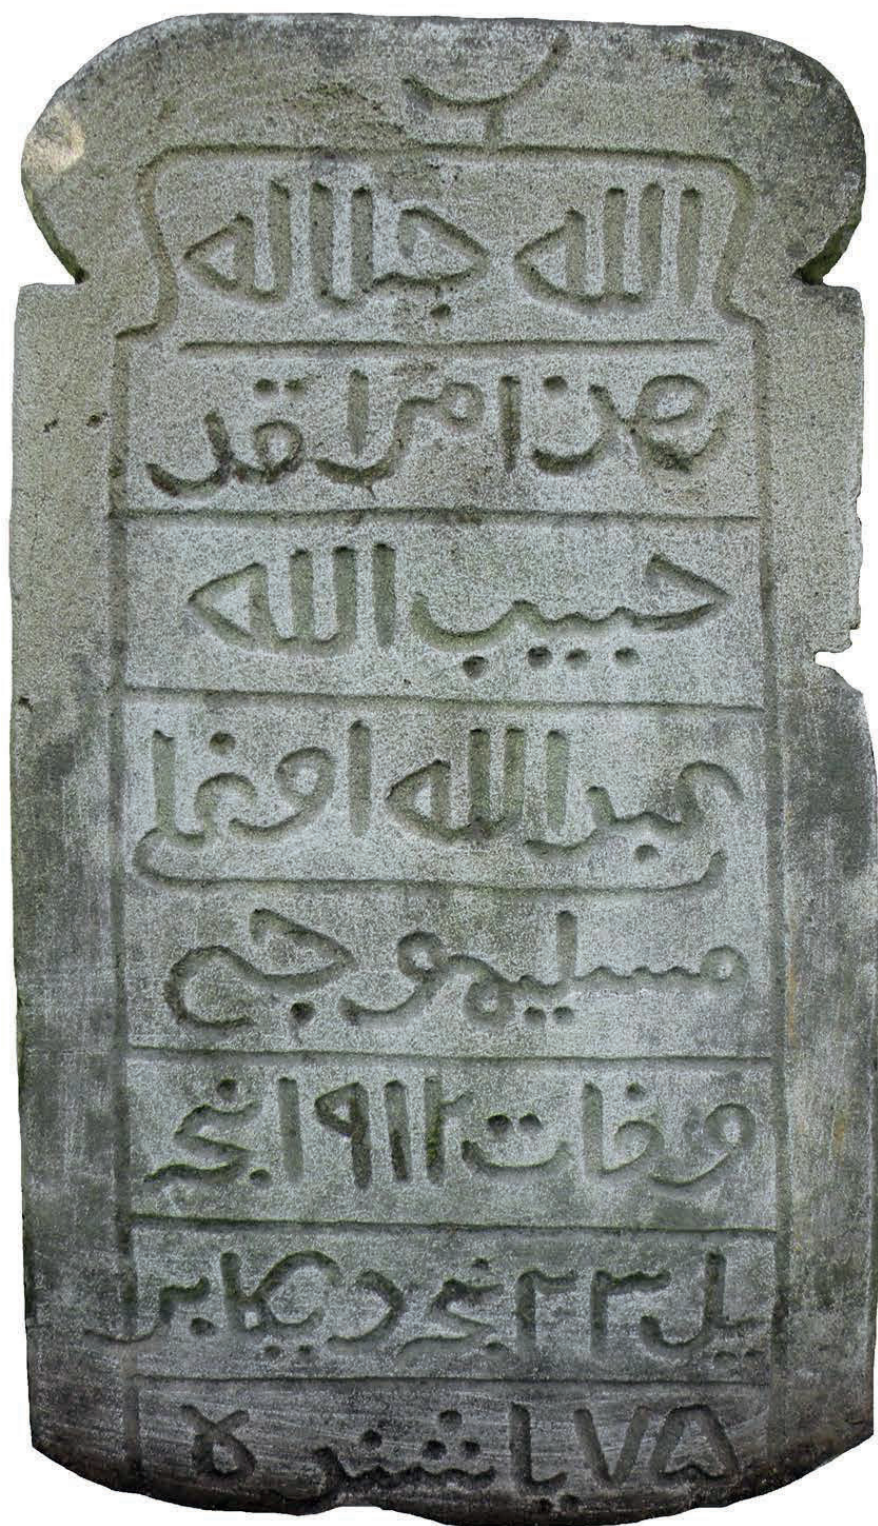 الله جلاله
هذا مراقد
حبيب الله
عبد الله اوغلى
وفات ١٩١٢ نجى
يل ٢٣ نجى ديكابر
٧٥ ياشنده